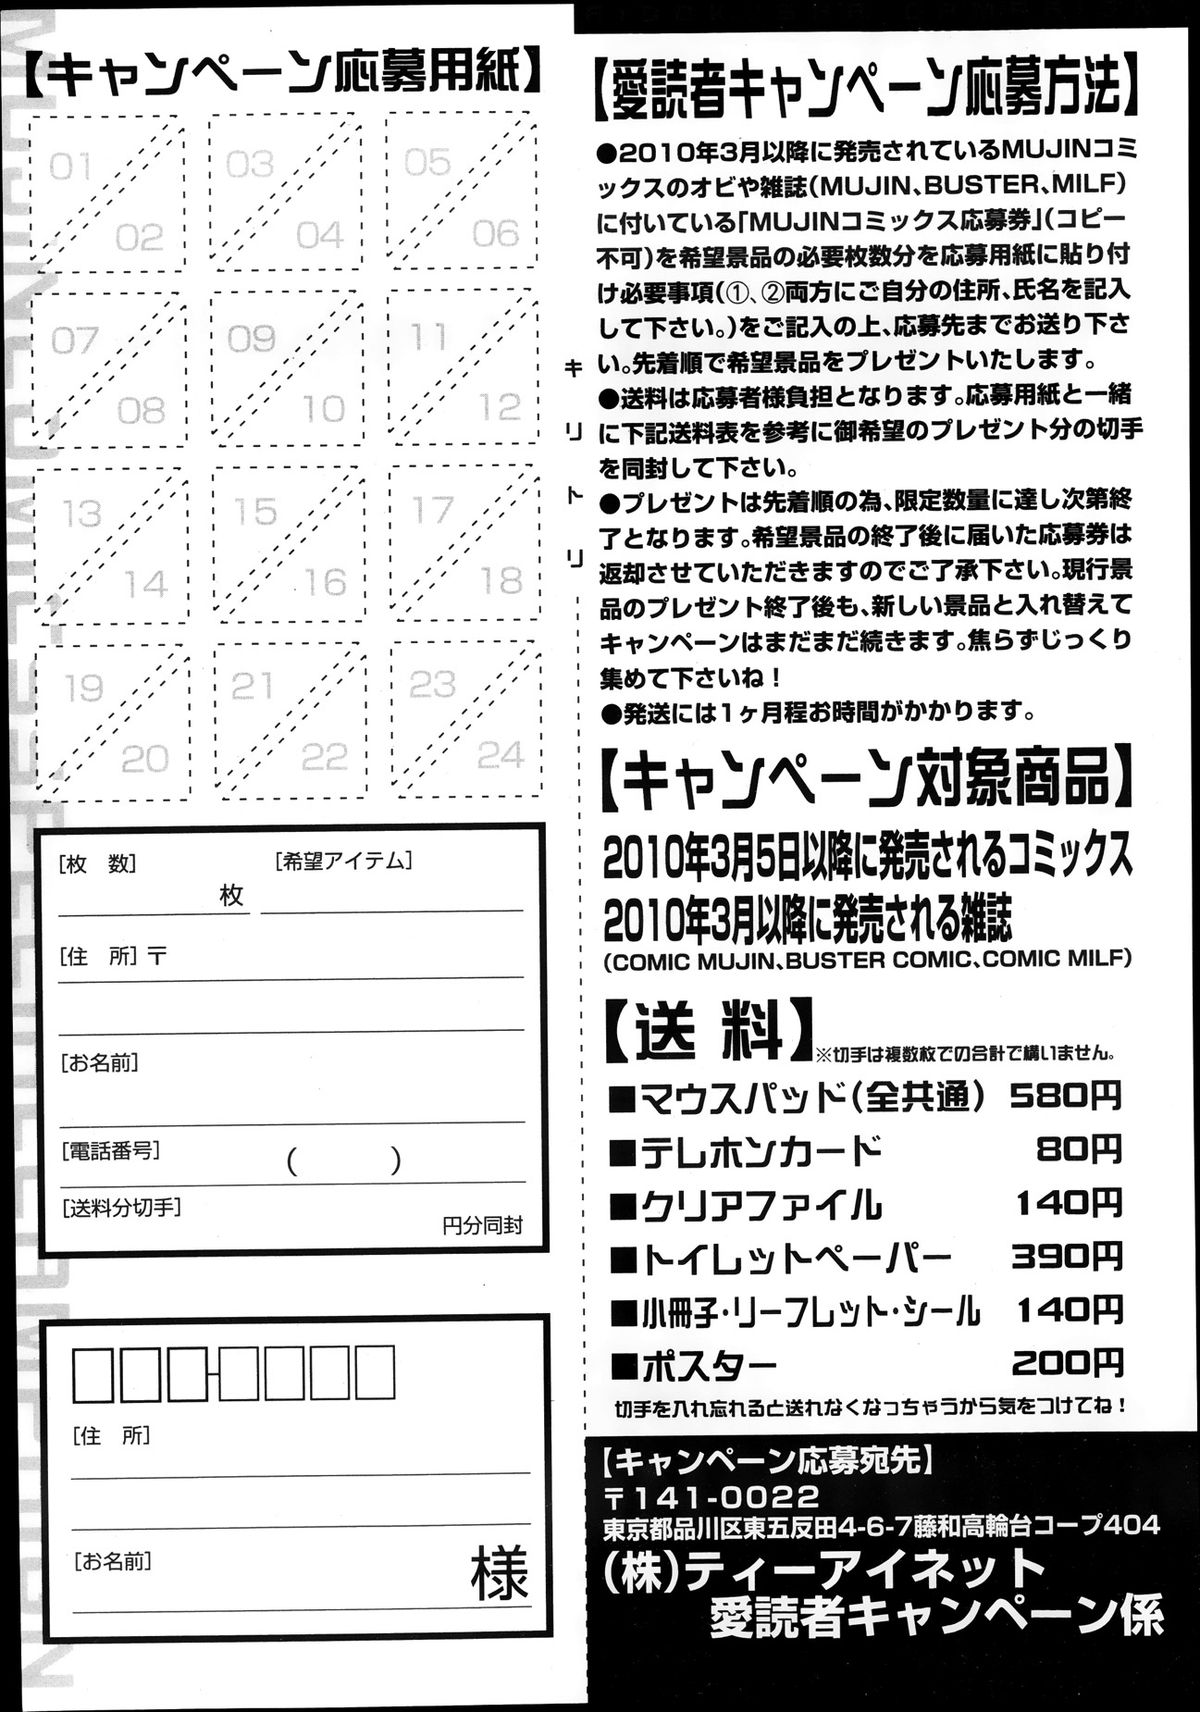 【キャンペーン応募用紙】
01
02
03
04
05
06
07
08
09
10
11
12
13
14
15
16
17
18
19
20
21
22
23
24
[枚　数]
枚
[希望アイテム]
[住　所] 〒
[お名前]
[電話番号]
(　　　)
[送料分切手]
円分同封
[住　所]
[お名前]
様
キリトリ
【愛読者キャンペーン応募方法】
●2010年3月以降に発売されているMUJINコミ
ックスのオビや雑誌(MUJIN、BUSTER、MILF)
に付いている「MUJINコミックス応募券」(コピー
不可)を希望景品の必要枚数分を応募用紙に貼り付
け必要事項(①、②両方にご自分の住所、氏名を記入
して下さい。)をご記入の上、応募先までお送り下さ
い。先着順で希望景品をプレゼントいたします。
●送料は応募者様負担となります。応募用紙と一緒
に下記送料表を参考に御希望のプレゼント分の切手
を同封して下さい。
●プレゼントは先着順の為、限定数量に達し次第終
了となります。希望景品の終了後に届いた応募券は
返却させていただきますのでご了承下さい。現行景
品のプレゼント終了後も、新しい景品と入れ替えて
キャンペーンはまだまだ続きます。焦らずじっくり
集めて下さいね！
●発送には1ヶ月程お時間がかかります。
【キャンペーン対象商品】
2010年3月5日以降に発売されるコミックス
2010年3月以降に発売される雑誌
(COMIC MUJIN、BUSTER COMIC、COMIC MILF)
【送 料】※切手は複数枚での合計で構いません。
■マウスパッド(全共通) 580円
■テレホンカード 80円
■クリアファイル 140円
■トイレットペーパー 390円
■小冊子・リーフレット・シール 140円
■ポスター 200円
切手を入れ忘れると送れなくなっちゃうから気をつけてね！
【キャンペーン応募宛先】
〒141-0022
東京都品川区東五反田4-6-7藤和高輪台コープ404
(株)ティーアイネット
愛読者キャンペーン係